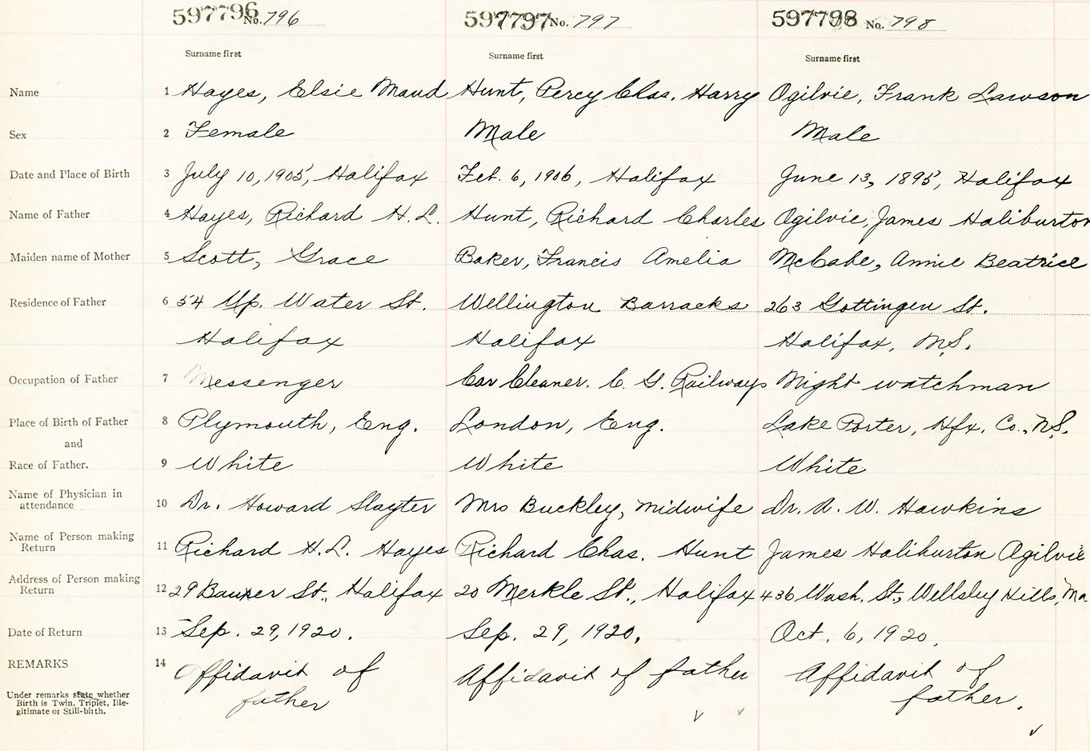 597796 No. 796 597797 No. 797 597798 No. 798
Surname first Surname first Surname first
Name 1 Hayes, Elsie Maud Hunt, Percy Chas. Harry Ogilvie, Frank Lawson
Sex 2 Female Male Male
Date and Place of Birth 3 July 10, 1905, Halifax Feb. 6, 1906, Halifax June 13, 1895, Halifax
Name of Father 4 Hayes, Richard H.L. Hunt, Richard Charles Ogilvie, James Haliburton
Maiden name of Mother 5 Scott, Grace Baker, Francis Amelia McCabe, Annie Beatrice
Residence of Father 6 54 Up. Water St. Wellington Barracks 263 Gottingen St.
Halifax Halifax Halifax, N.S.
Occupation of Father 7 Messenger Car Cleaner. C. G. Railways Night watchman
Place of Birth of Father 8 Plymouth, Eng. London, Eng. Lake Porter, Hfx. Co., N.S.
and
Race of Father. 9 White White White
Name of Physician in
attendance 10 Dr. Howard Slayter Mrs Buckley, midwife Dr. A. W. Hawkins
Name of Person making
Return 11 Richard H.L. Hayes Richard Chas. Hunt James Haliburton Ogilvie
Address of Person making
Return 12 29 St., Halifax 20 Merkle St., Halifax 436 Wash. St., Wellsley Hills, Ma
Date of Return 13 Sep. 29, 1920. Sep. 29, 1920. Oct. 6, 1920.
REMARKS 14 Affidavit of Affidavit of father Affidavit of
father father.
Under remarks state whether
Birth is Twin, Triplet, Ille-
gitimate or Still-birth.